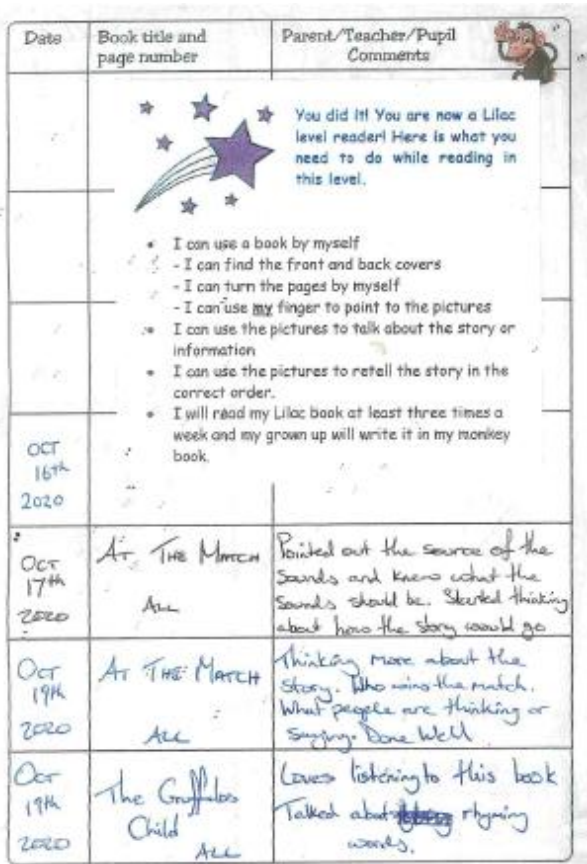 Date Book title and page number Parent/Teacher/Pupil Comments
You did it! You are now a Lilac
level reader! Here is what you
need to do while reading in
this level.
• I can use a book by myself
- I can find the front and back covers
- I can turn the pages by myself
- I can use my finger to point to the pictures
• I can use the pictures to talk about the story or
information
• I can use the pictures to retell the story in the
correct order.
• I will read my Lilac book at least three times a
week and my grown up will write it in my monkey
book.
OCT
16th
2020
OCT
17th
2020
AT THE MATCH
ALL
Pointed out the source of the
sounds and knew what the
sounds should be. Started thinking
about how the story would go
OCT
19th
2020
AT THE MATCH
ALL
Thinking more about the
story. Who wins the match.
What people are thinking or
saying. Done Well
OCT
19th
2020
The Gruffalos
Child
ALL
Loves listening to this book
Talked about rhyming
words.